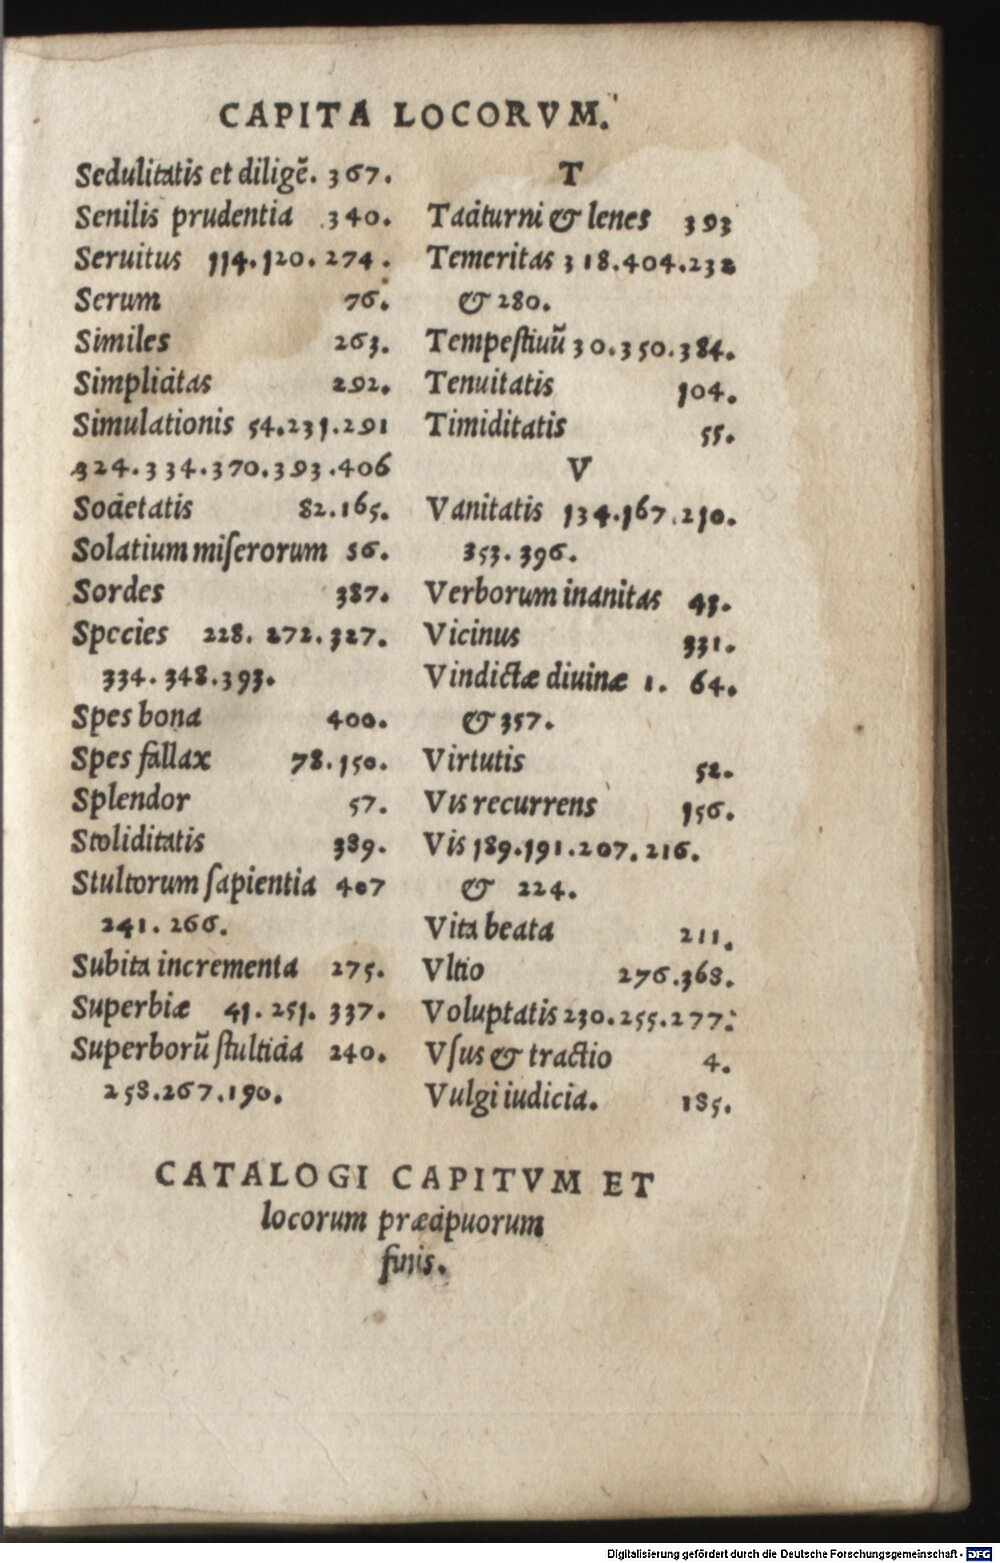 CAPITA LOCORVM.
Sedulitatis et diligē. 367.
Senilis prudentia 340.
Seruitus 114.120.274.
Serum 76.
Similes 263.
Simplicitas 292.
Simulationis 54.231.291
324.334.370.393.406
Societatis 82.165.
Solatium miſerorum 56.
Sordes 387.
Species 228. 272. 327.
334. 348.393.
Spes bona 400.
Spes fallax 78.150.
Splendor 57.
Stoliditatis 389.
Stultorum ſapientia 407
241. 266.
Subita incrementa 275.
Superbiæ 41. 251. 337.
Superborū ſtultitia 240.
258.267.190.
T
Taciturni & lenes 393
Temeritas 318.404.232
& 280.
Tempeſtiuū 30.350.384.
Tenuitatis 104.
Timiditatis 55.
V
Vanitatis 134.167.210.
353. 396.
Verborum inanitas 43.
Vicinus 331.
Vindictæ diuinæ 1. 64.
& 357.
Virtutis 52.
Vis recurrens 156.
Vis 189.191.207.216.
& 224.
Vita beata 211.
Vltio 276.368.
Voluptatis 230.255.277.
Vſus & tractio 4.
Vulgi iudicia. 185.
CATALOGI CAPITVM ET
locorum præcipuorum
finis.
Digitalisierung gefördert durch die Deutsche Forschungsgemeinschaft - DFG